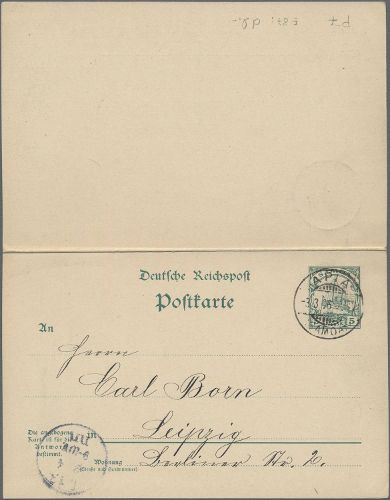 Deutsche Reichspost
Postkarte
APIA
SAMOA
5
An
Herrn
Carl Born
in
Leipzig
Die angebogene
Karte ist für die
Antwort
bestimmt.
Wohnung
(Straße und Hausnummer)
Berliner Str. 2.